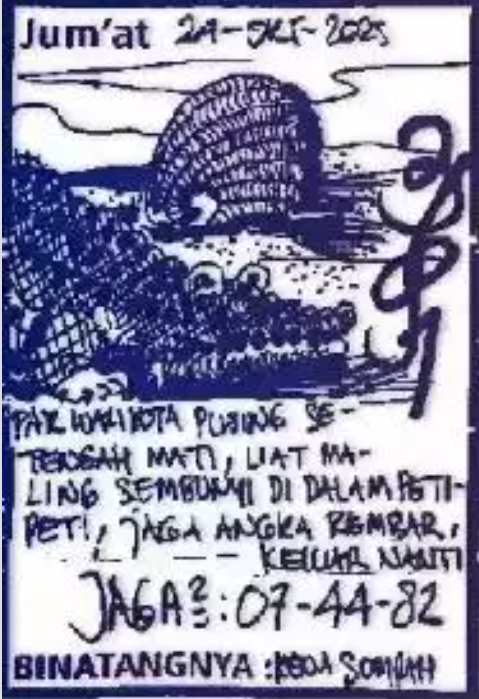 Jum'at 24-OKT-2025
PAK WALIKOTA PUSING SE-
TENGAH MATI, LIAT MA-
LING SEMBUNYI DI DALAM PETI-
PETI, JAGA ANGKA KEMBAR,
KELUAR NANTI
JAGA²: 07-44-82
BINATANGNYA :KUDA SEMBAH